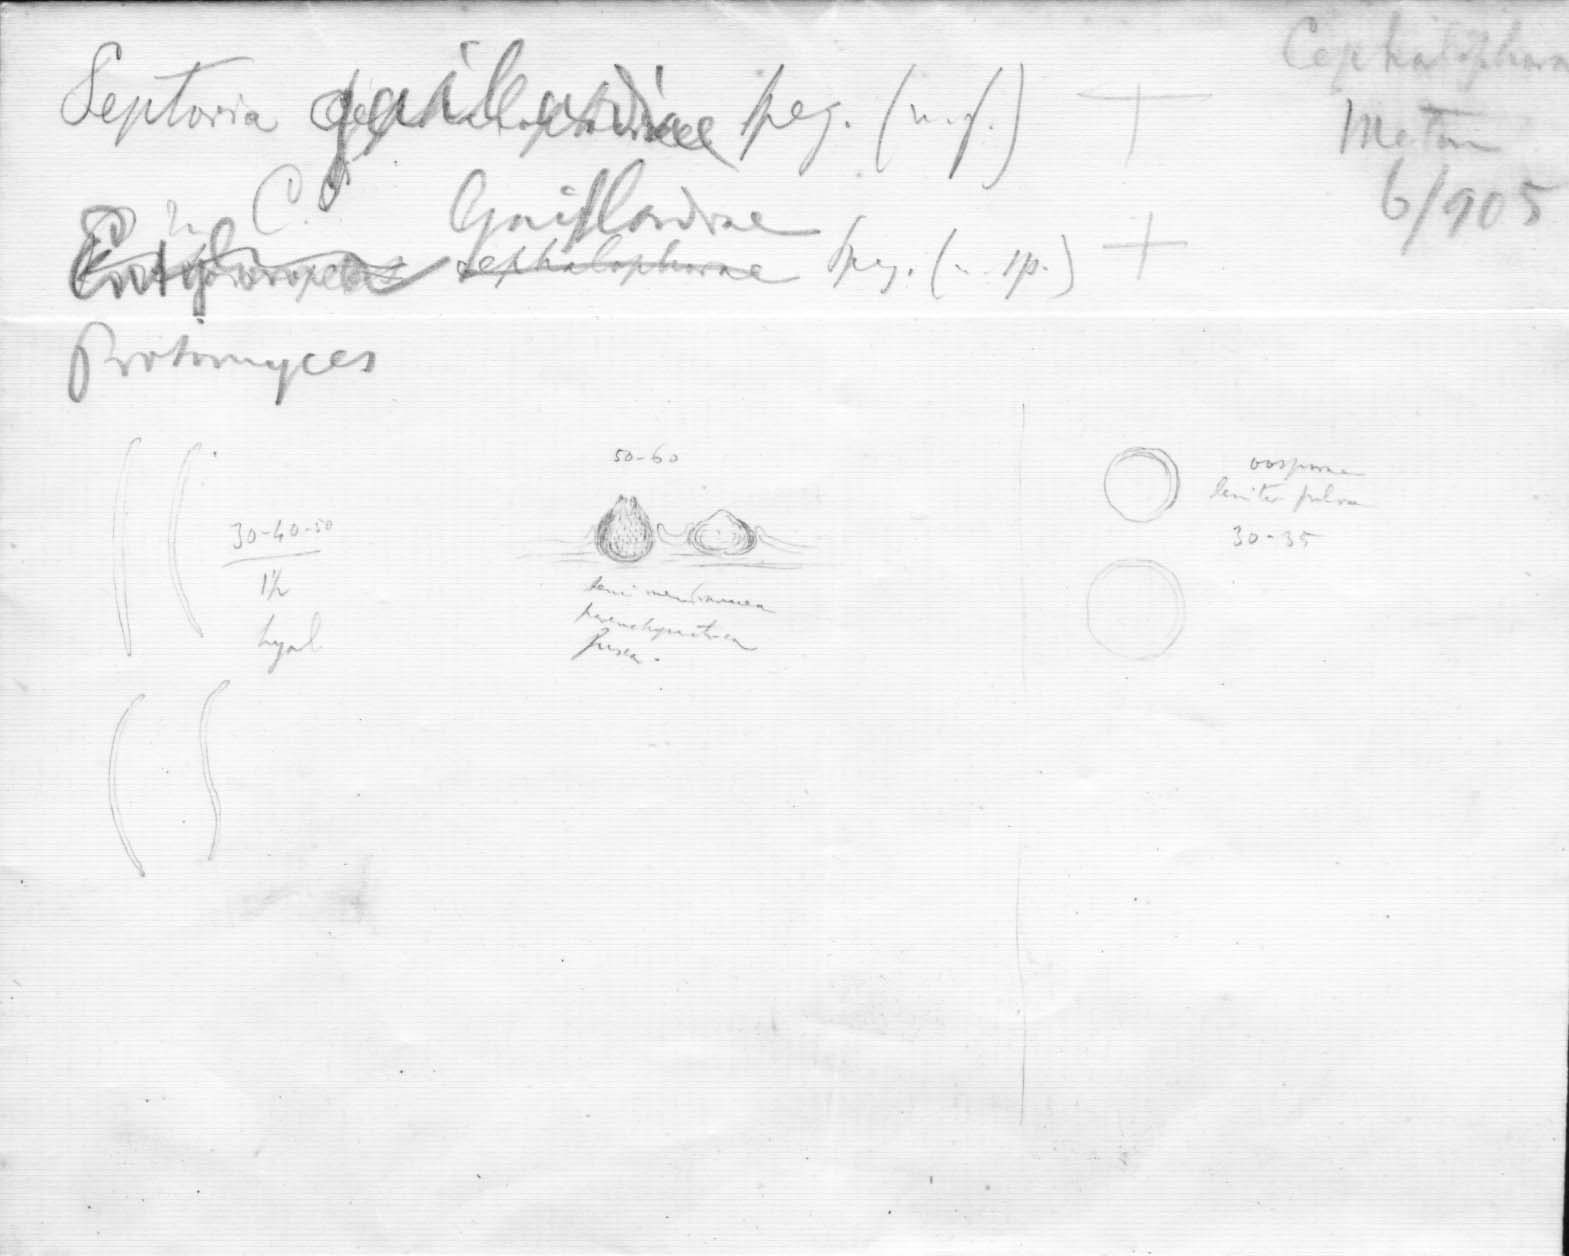 Septoria gaillardiae Speg. (n. f.)
Cephalophora
Metan
6/905
C.
Gaillardiae
cephalophorae Speg. (n. sp.)
Protomyces
50-60
30-40-50
1½
hyal
semi membranacea
parenchymatica
fusca.
oosporae
leniter fulvae
30-35